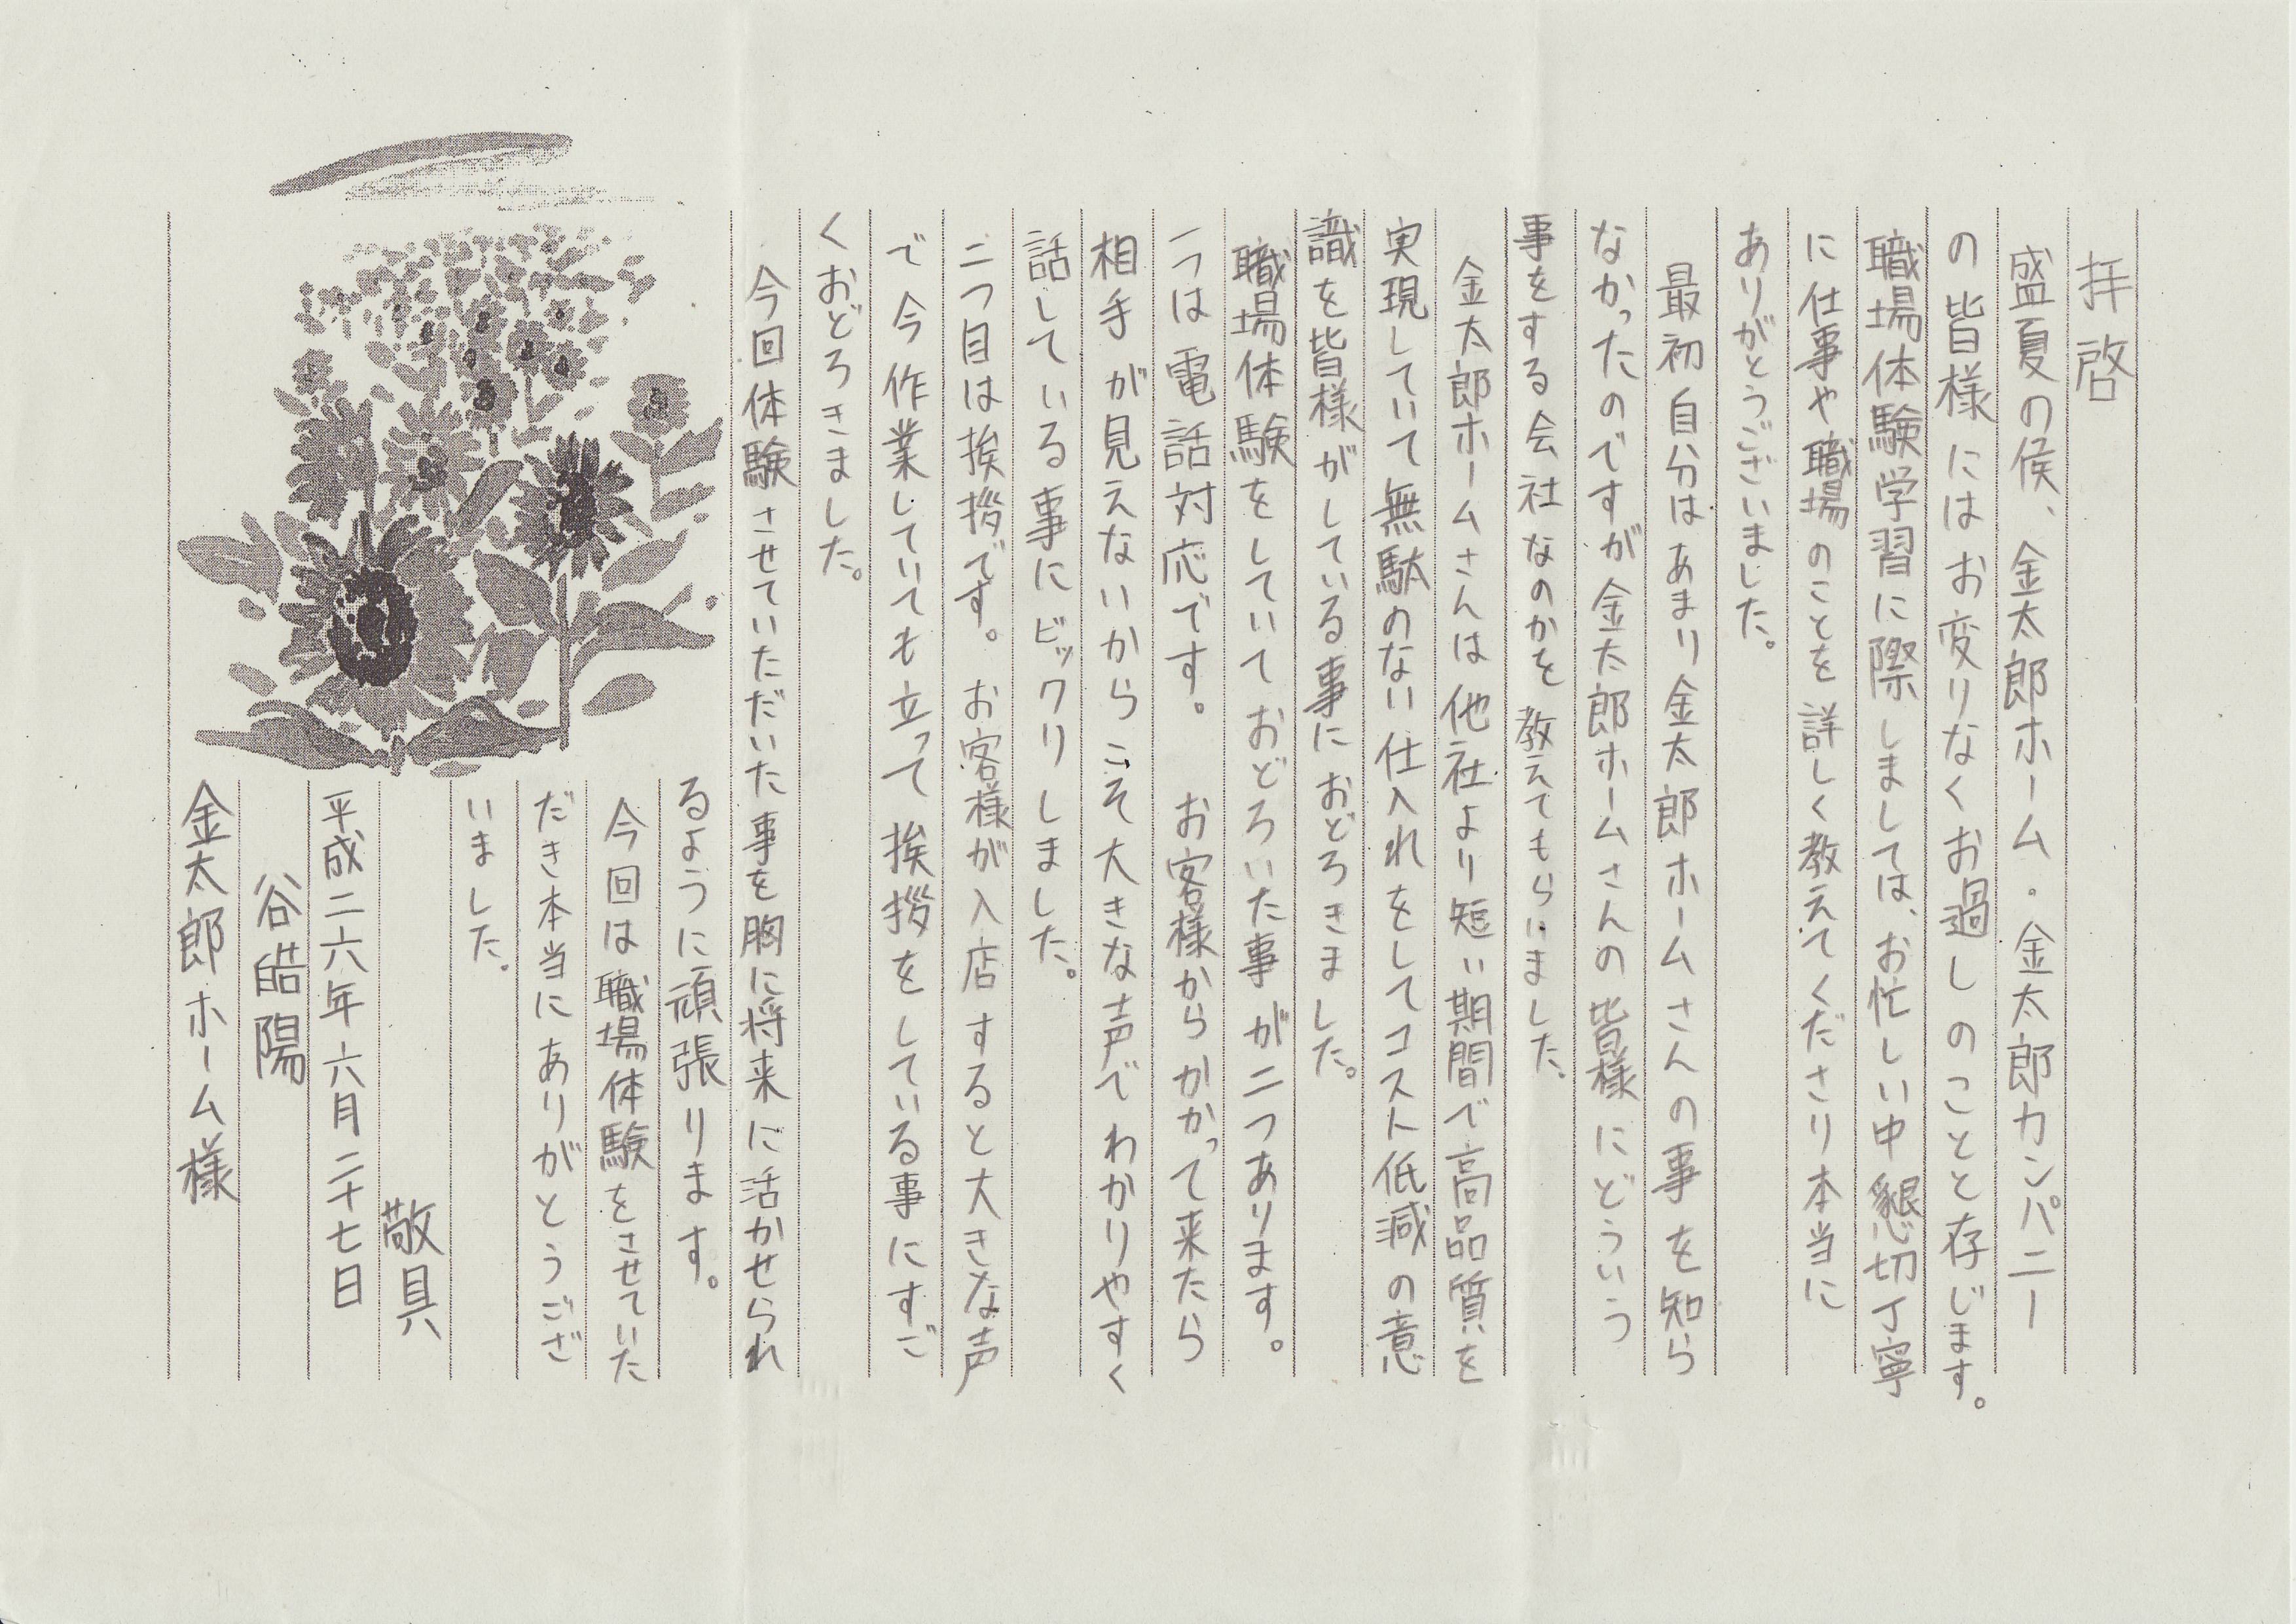 拝啓
盛夏の候、金太郎ホーム・金太郎カンパニー
の皆様にはお変りなくお過しのことと存じます。
職場体験学習に際しましては、お忙しい中懇切丁寧
に仕事や職場のことを詳しく教えてくださり本当に
ありがとうございました。
最初自分はあまり金太郎ホームさんの事を知ら
なかったのですが金太郎ホームさんの皆様にどういう
事をする会社なのかを教えてもらいました。
金太郎ホームさんは他社より短い期間で高品質を
実現していて無駄のない仕入れをしてコスト低減の意
識を皆様がしている事におどろきました。
職場体験をしていておどろいた事が二つあります。
一つは電話対応です。お客様からかかって来たら
相手が見えないからこそ大きな声でわかりやすく
話している事にビックリしました。
二つ目は挨拶です。お客様が入店すると大きな声
で今作業していても立って挨拶をしている事にすご
くおどろきました。
今回体験させていただいた事を胸に将来に活かせられ
るように頑張ります。
今回は職場体験をさせていた
だき本当にありがとうござ
いました。
敬具
平成二六年六月二十七日
谷皓陽
金太郎ホーム様